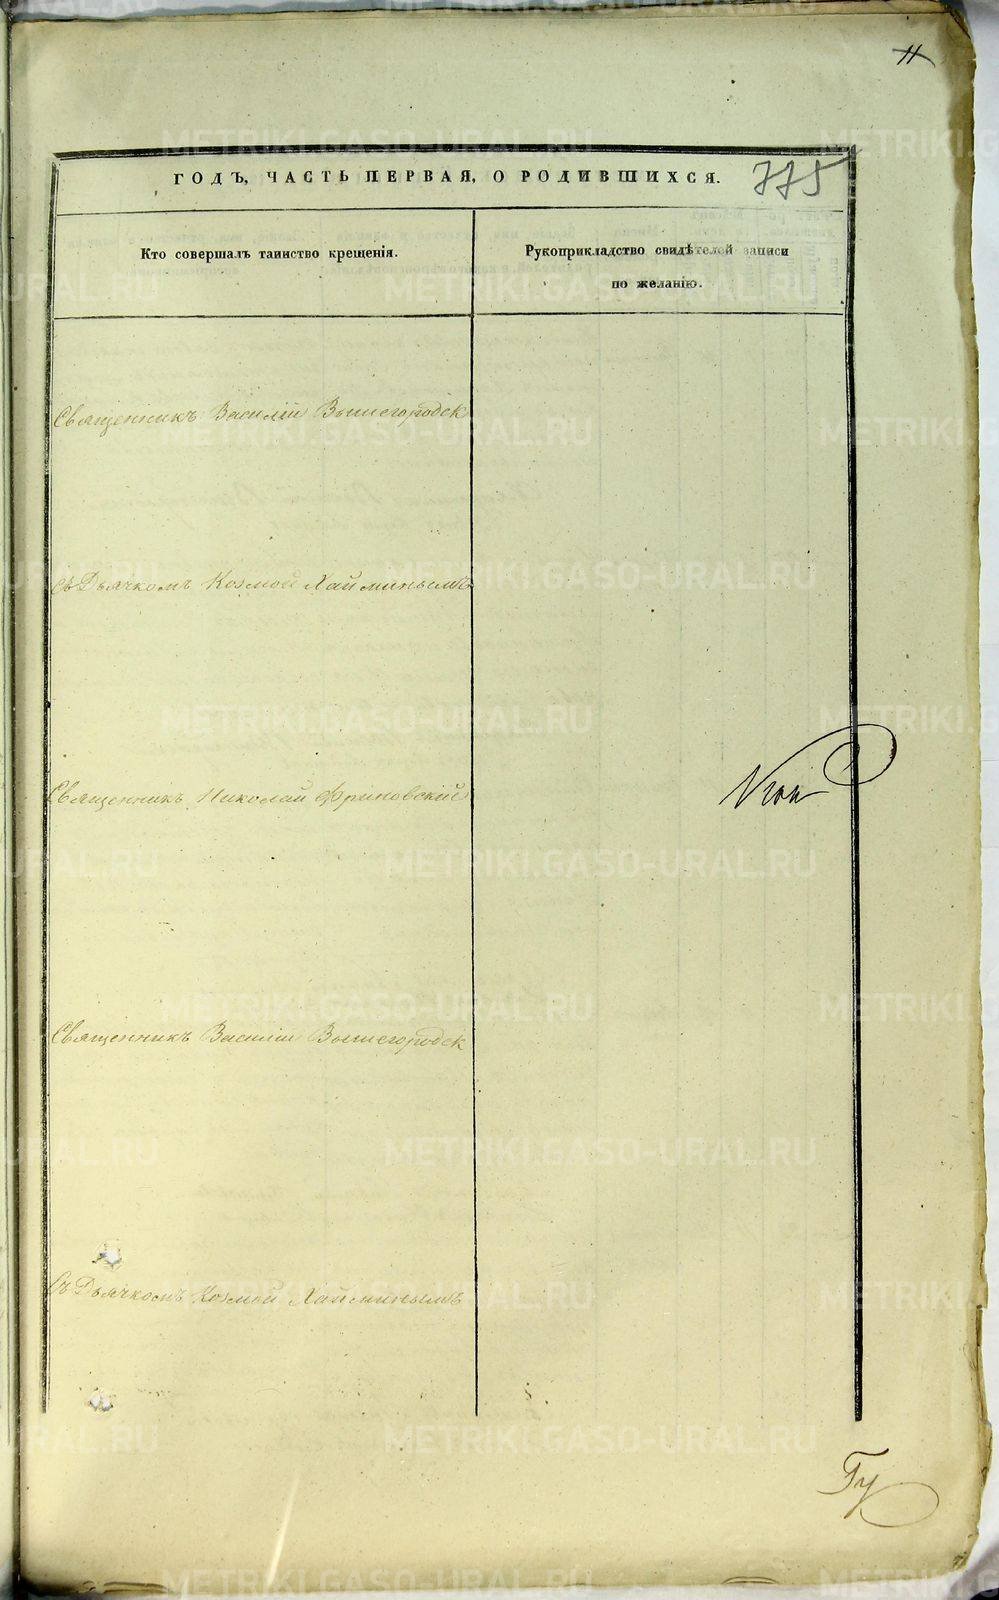 11
775
ГОДЪ, ЧАСТЬ ПЕРВАЯ, О РОДИВШИХСЯ.
Кто совершалъ таинство крещенія.
Рукоприкладство свидѣтелей записи
по желанію.
Священникъ Василій Вышегородск
Съ Дьячкомъ Козмой Хайминымъ
Священникъ Николай Фриновскій
Священникъ Василій Вышегородск
Съ Дьячкомъ Козмой Хайминымъ
METRIKI.GASO-URAL.RU